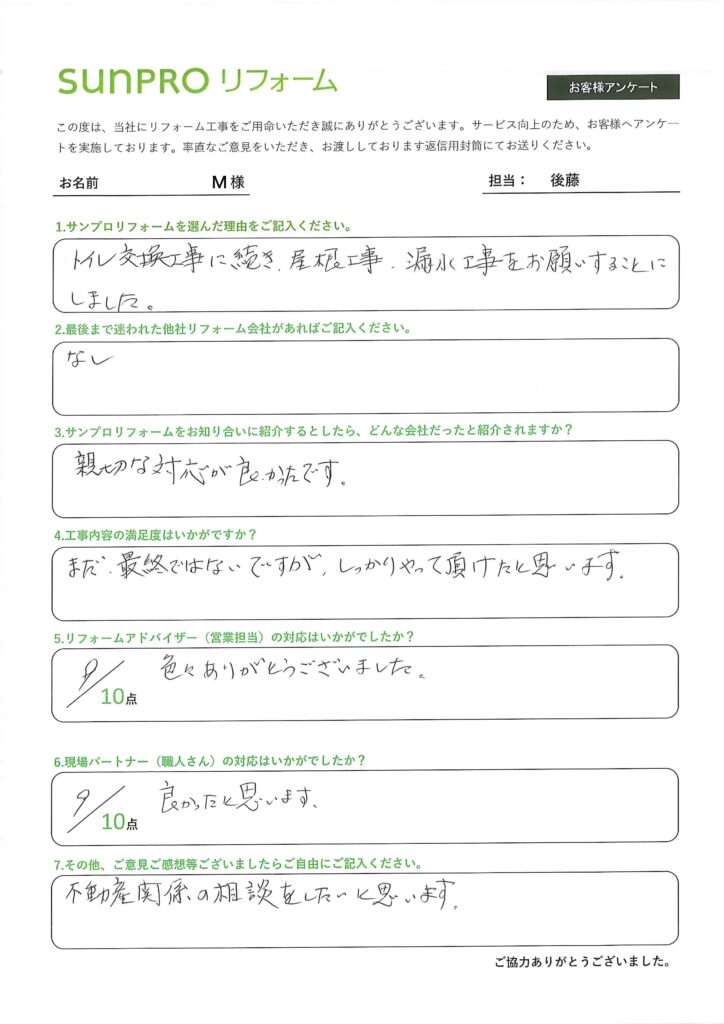 sunPRO リフォーム
お客様アンケート
この度は、当社にリフォーム工事をご用命いただき誠にありがとうございます。サービス向上のため、お客様へアンケー
トを実施しております。率直なご意見をいただき、お渡ししております返信用封筒にてお送りください。
お名前 M 様 担当： 後藤
1.サンプロリフォームを選んだ理由をご記入ください。
トイレ交換工事に続き、屋根工事、漏水工事をお願いすることに
しました。
2.最後まで迷われた他社リフォーム会社があればご記入ください。
なし
3.サンプロリフォームをお知り合いに紹介するとしたら、どんな会社だったと紹介されますか？
親切な対応が良かったです。
4.工事内容の満足度はいかがですか？
まだ、最終ではないですが、しっかりやって頂けたと思います。
5.リフォームアドバイザー（営業担当）の対応はいかがでしたか？
色々ありがとうございました。
9/10点
6.現場パートナー（職人さん）の対応はいかがでしたか？
良かったと思います。
9/10点
7.その他、ご意見ご感想等ございましたらご自由にご記入ください。
不動産関係の相談をしたいと思います。
ご協力ありがとうございました。